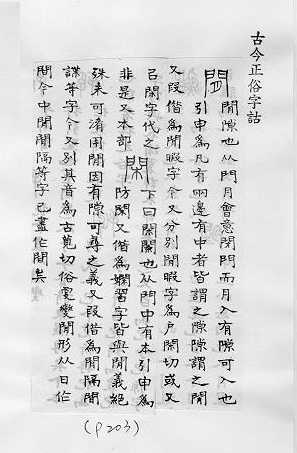 古今正俗字詁
閒 閒隙也从門月會意閉門而月入有隙可入也
引申為凡有兩邊有中者皆謂之隙隙謂之閒
又叚借為閒暇字今又分別閒暇字為戶閒切或又
㠯閑字代之
非是又本部
閑
下曰閑闌也从門中有木引申為
防閑又借為嫺習字皆與閒義絕
殊未可淆用閒固有隙可尋之義又叚借為閒隔閒
諜等字今又別其音為古莧切俗寬變閒形从日作
間今中閒閒隔等字已盡作間矣
(P203)